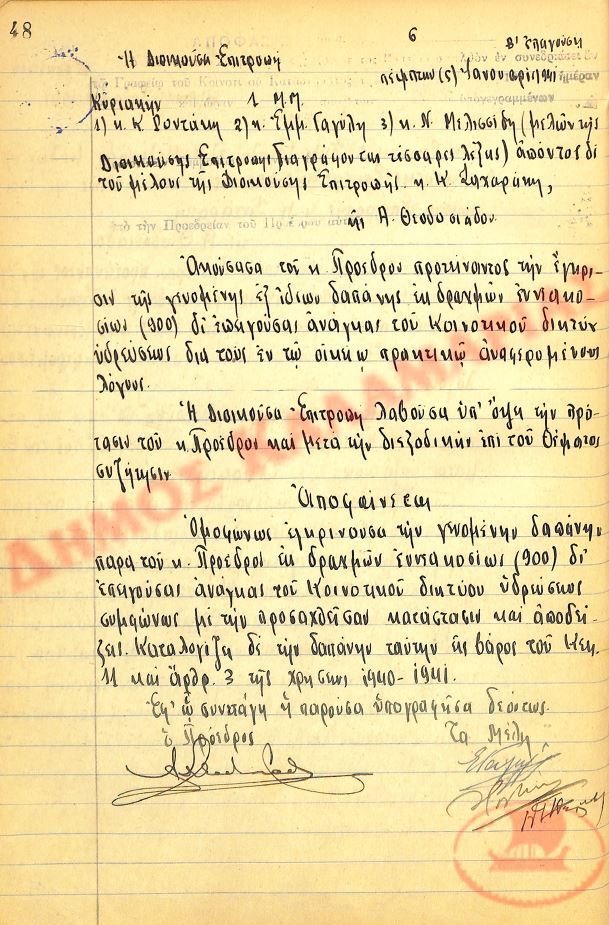 48
6
Β' Επείγουσα
Ἡ Διοικοῦσα Ἐπιτροπή
πέμπτην (5) Ἰανουαρί 1941
Κυριακήν 1 μ.μ
1) κ. Κ. Ροντάκη 2) κ. Εμμ. Γαγύλη 3) κ. Ν. Μελισσίδη (μελῶν τῆς
Διοικούσης Ἐπιτροπῆς διαγράφονται τέσσαρες λέξεις) ἀπόντος δε
τοῦ μέλους τῆς Διοικούσης Ἐπιτροπῆς κ. Κ. Ζαχαράκη,
ὑπὸ τὴν Προεδρείαν τοῦ Προέδρου αὐτ
κης Α. Θεοδοσιάδου
Ἀκούσασα τοῦ κ. Προέδρου προτείναντος τὴν ἔγκρι
σιν τῆς γενομένης ἐξ ἰδίων δαπάνης ἐκ δραχμῶν ἐννεακο
σίων (900) δι' ἐπειγούσας ἀνάγκας τοῦ Κοινοτικοῦ δικτύου
ὑδρεύσεως δια τοὺς ἐν τῷ οἰκείῳ πρακτικῷ ἀναφερομένους
λόγους.
Ἡ Διοικοῦσα Ἐπιτροπή λαβοῦσα ὑπ' ὄψει τὴν πρό
τασιν τοῦ κ. Προέδρου καὶ μετὰ τὴν διεξοδικὴν ἐπὶ τοῦ θέματος
συζήτησιν
Ἀποφαίνεται
Ὁμοφώνως ἐγκρίνουσα τὴν γενομένην δαπάνην
παρα τοῦ κ. Προέδρου ἐκ δραχμῶν ἐννεακοσίων (900) δι'
ἐπειγούσας ἀνάγκας τοῦ Κοινοτικοῦ δικτύου ὑδρεύσεως
συμφώνως μὲ τὴν προσαχθεῖσαν κατάστασιν καὶ ἀποδεί
ξεις. Καταλογίζει δὲ τὴν δαπάνην ταύτην εἰς βάρος τοῦ Κεφ.
11 καὶ ἄρθρ. 3 τῆς χρήσεως 1940-1941.
Ἐφ' ᾧ συνετάγη ἡ παροῦσα ὑπογραφεῖσα δεόντως.
Ὁ Πρόεδρος Τὰ Μέλη
ΔΗΜΟΣ ΚΑΛΑΜΑΡΙΑΣ